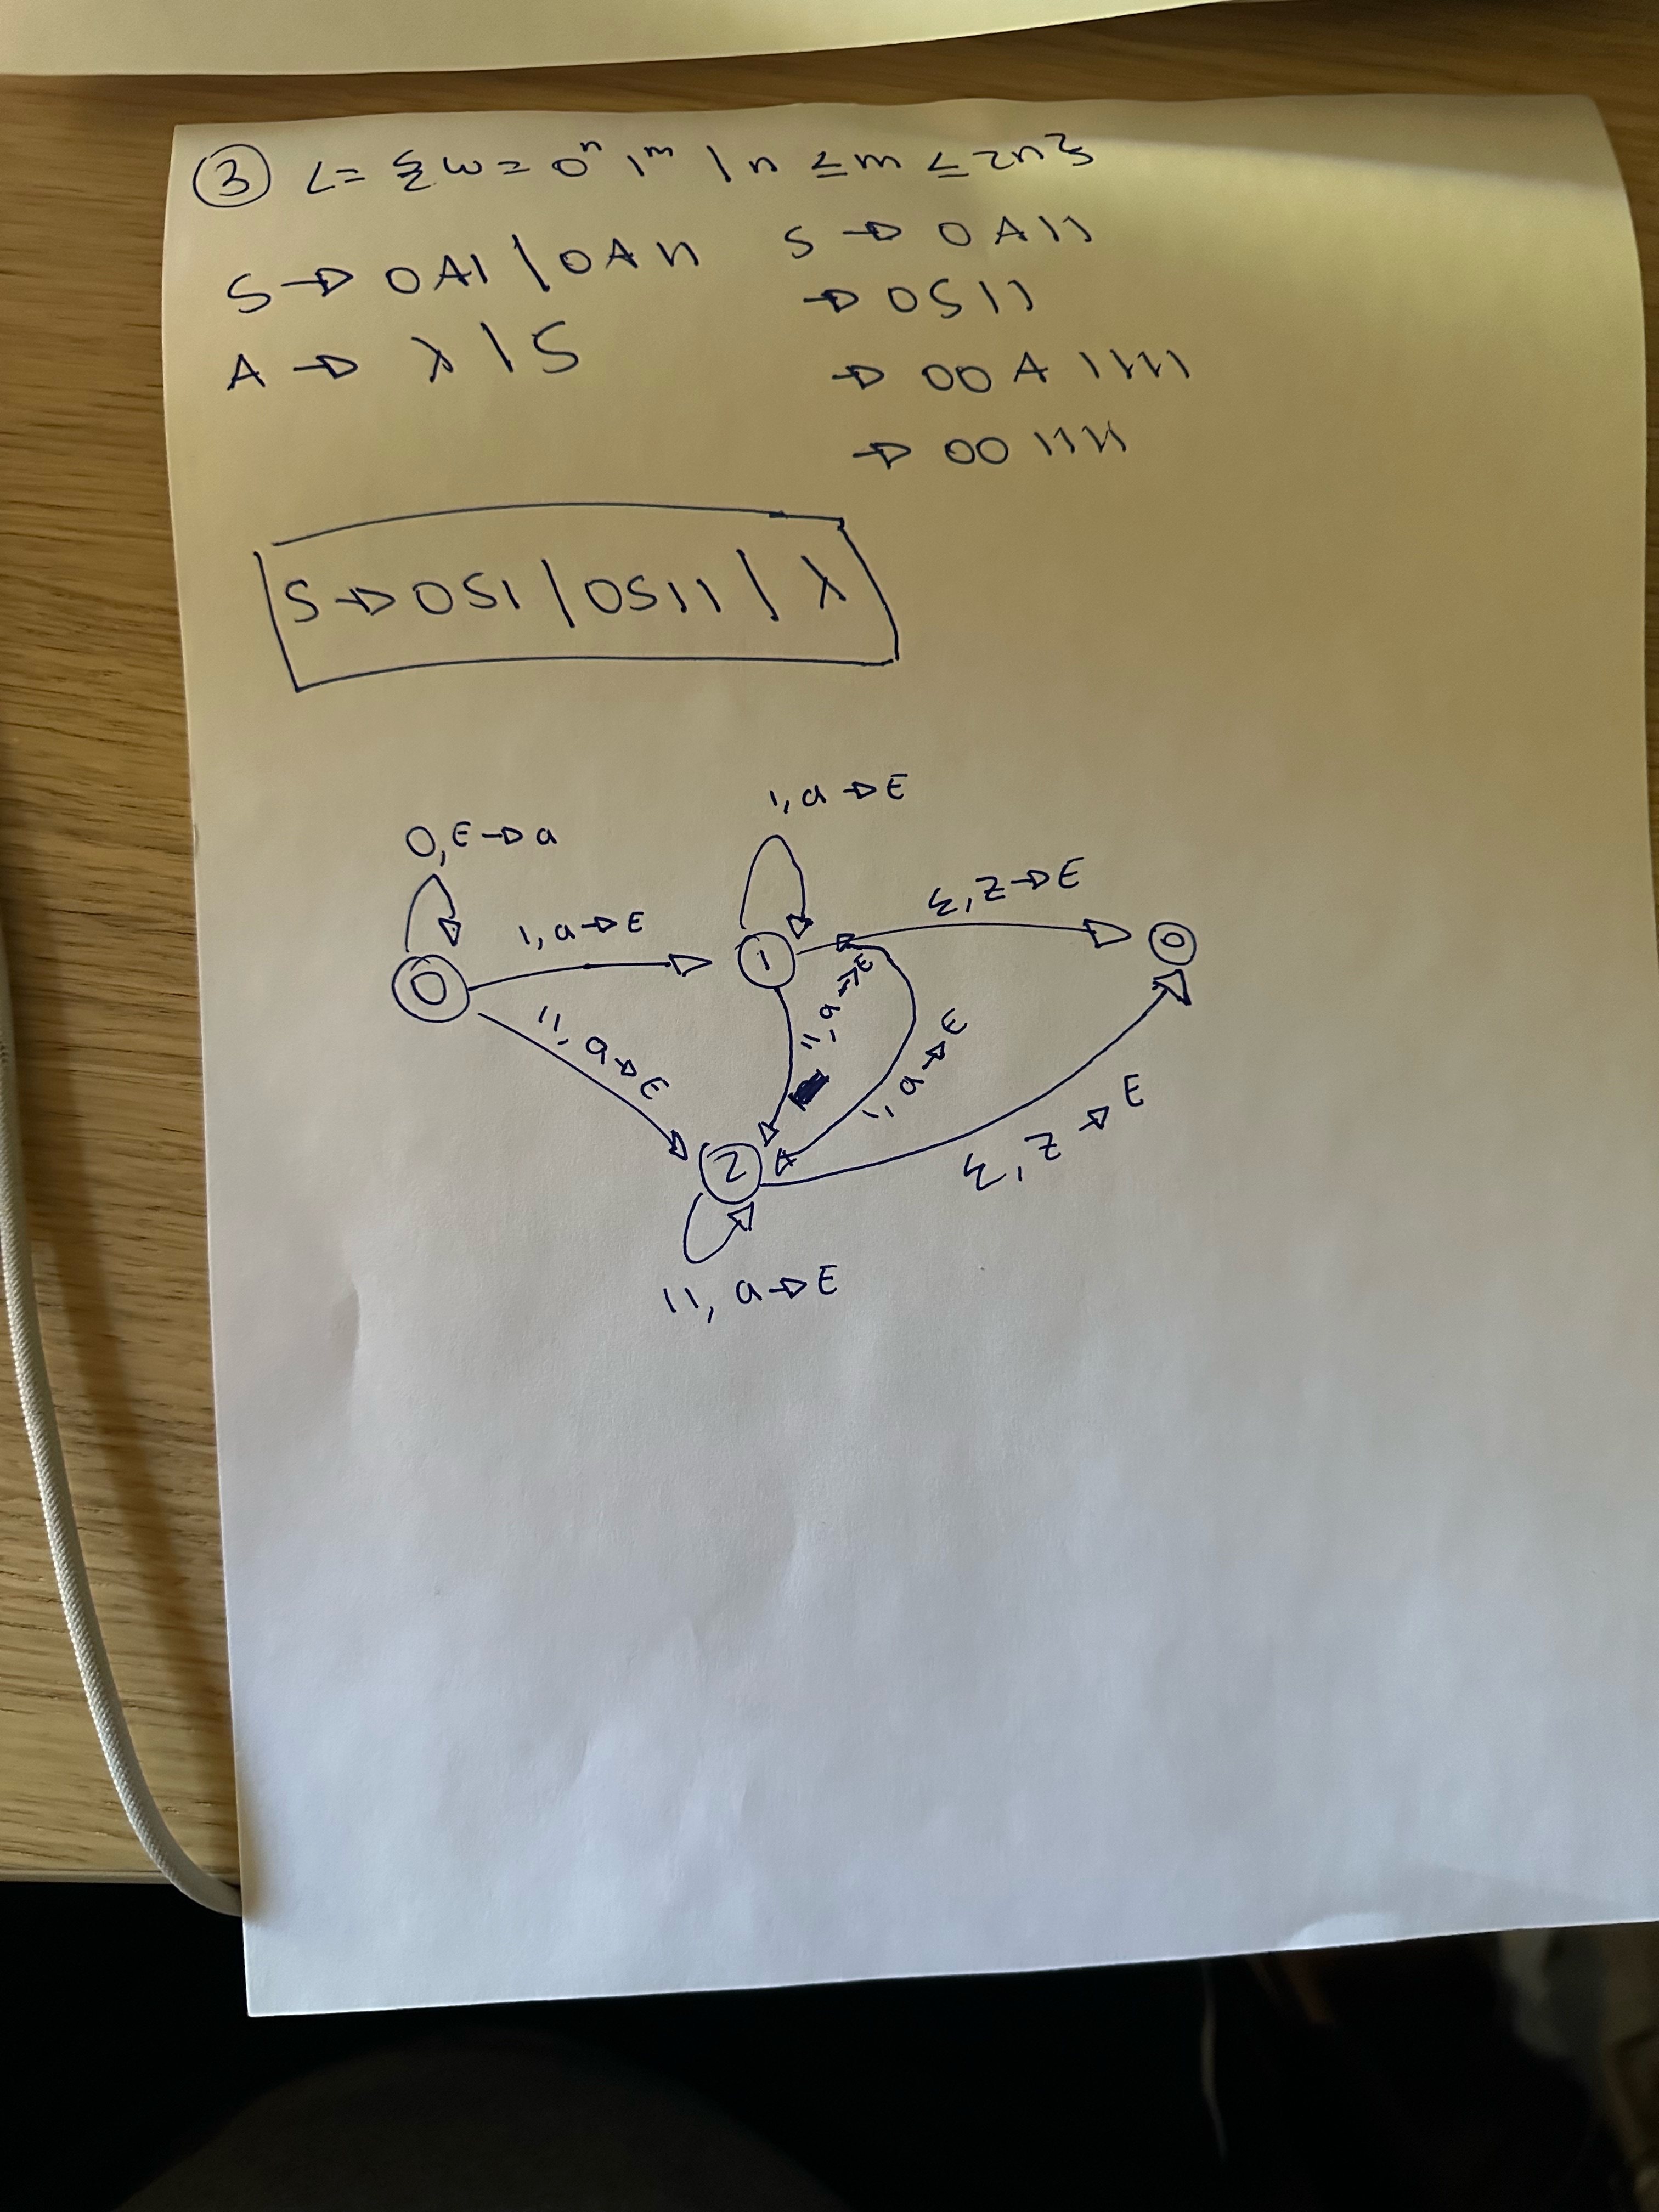 ③ L = {w = 0ⁿ 1ᵐ | n ≤ m ≤ 2n}
S → 0A1 | 0A11
A → λ | S
S → 0A11
→ 0S11
→ 00A1111
→ 001111
S → 0S1 | 0S11 | λ
1, a → ε
0, ε → a
ε, z → ε
1, a → ε
0
1
11, a → ε
11, a → ε
1, a → ε
2
ε, z → ε
11, a → ε